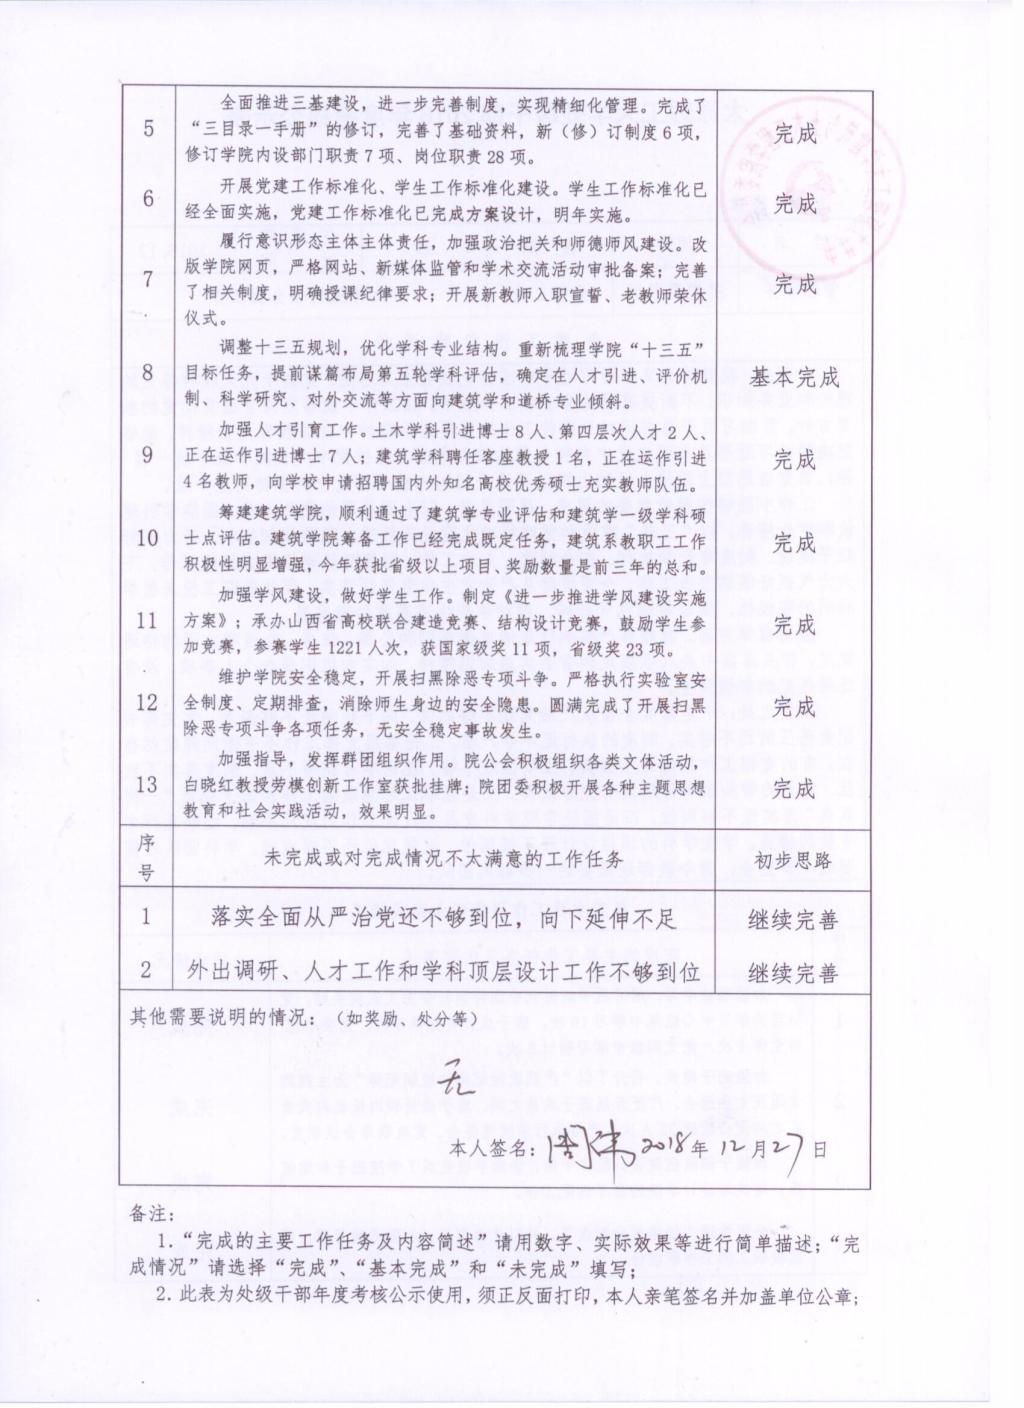 5
全面推进三基建设，进一步完善制度，实现精细化管理。完成了
“三目录一手册”的修订，完善了基础资料，新（修）订制度6项，
修订学院内设部门职责7项、岗位职责28项。
完成
6
开展党建工作标准化、学生工作标准化建设。学生工作标准化已
经全面实施，党建工作标准化已完成方案设计，明年实施。
完成
7
履行意识形态主体主体责任，加强政治把关和师德师风建设。改
版学院网页，严格网站、新媒体监管和学术交流活动审批备案；完善
了相关制度，明确授课纪律要求；开展新教师入职宣誓、老教师荣休
仪式。
完成
8
调整十三五规划，优化学科专业结构。重新梳理学院“十三五”
目标任务，提前谋篇布局第五轮学科评估，确定在人才引进、评价机
制、科学研究、对外交流等方面向建筑学和道桥专业倾斜。
基本完成
9
加强人才引育工作。土木学科引进博士8人、第四层次人才2人、
正在运作引进博士7人；建筑学科聘任客座教授1名，正在运作引进
4名教师，向学校申请招聘国内外知名高校优秀硕士充实教师队伍。
完成
10
筹建建筑学院，顺利通过了建筑学专业评估和建筑学一级学科硕
士点评估。建筑学院筹备工作已经完成既定任务，建筑系教职工工作
积极性明显增强，今年获批省级以上项目、奖励数量是前三年的总和。
完成
11
加强学风建设，做好学生工作。制定《进一步推进学风建设实施
方案》；承办山西省高校联合建造竞赛、结构设计竞赛，鼓励学生参
加竞赛，参赛学生1221人次，获国家级奖11项，省级奖23项。
完成
12
维护学院安全稳定，开展扫黑除恶专项斗争。严格执行实验室安
全制度、定期排查，消除师生身边的安全隐患。圆满完成了开展扫黑
除恶专项斗争各项任务，无安全稳定事故发生。
完成
13
加强指导，发挥群团组织作用。院公会积极组织各类文体活动，
白晓红教授劳模创新工作室获批挂牌；院团委积极开展各种主题思想
教育和社会实践活动，效果明显。
完成
序
号
未完成或对完成情况不太满意的工作任务
初步思路
1
落实全面从严治党还不够到位，向下延伸不足
继续完善
2
外出调研、人才工作和学科顶层设计工作不够到位
继续完善
其他需要说明的情况：（如奖励、处分等）
无
本人签名： 2018年12月27日
备注：
1.“完成的主要工作任务及内容简述”请用数字、实际效果等进行简单描述；“完
成情况”请选择“完成”、“基本完成”和“未完成”填写；
2.此表为处级干部年度考核公示使用，须正反面打印，本人亲笔签名并加盖单位公章；